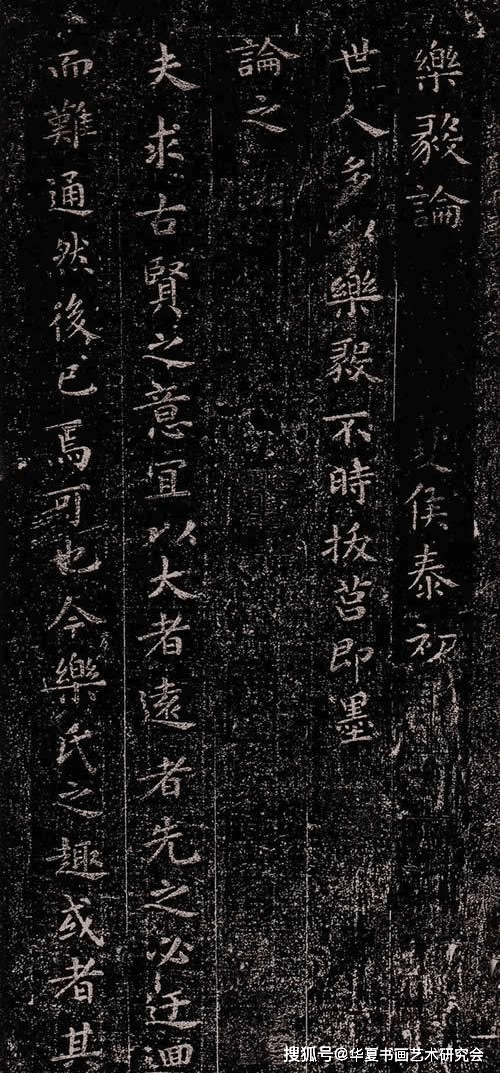 樂毅論 侯泰初
世人多以樂毅不時拔莒即墨
論之
夫求古賢之意宜以大者遠者先之必迂迴
而難通然後已焉可也今樂氏之趣或者其
搜狐号@华夏书画艺术研究会